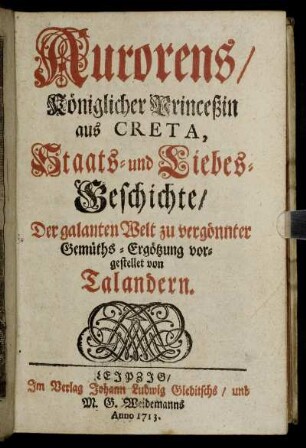 Aurorens/
Königlicher Princeßin
aus CRETA,
Staats- und Liebes-
Geschichte/
Der galanten Welt zu vergönnter
Gemüths-Ergötzung vor-
gestellet von
Talandern.
LEIPZIG/
Im Verlag Johann Ludwig Gleditschs/ und
M. G. Weidemanns
Anno 1713.